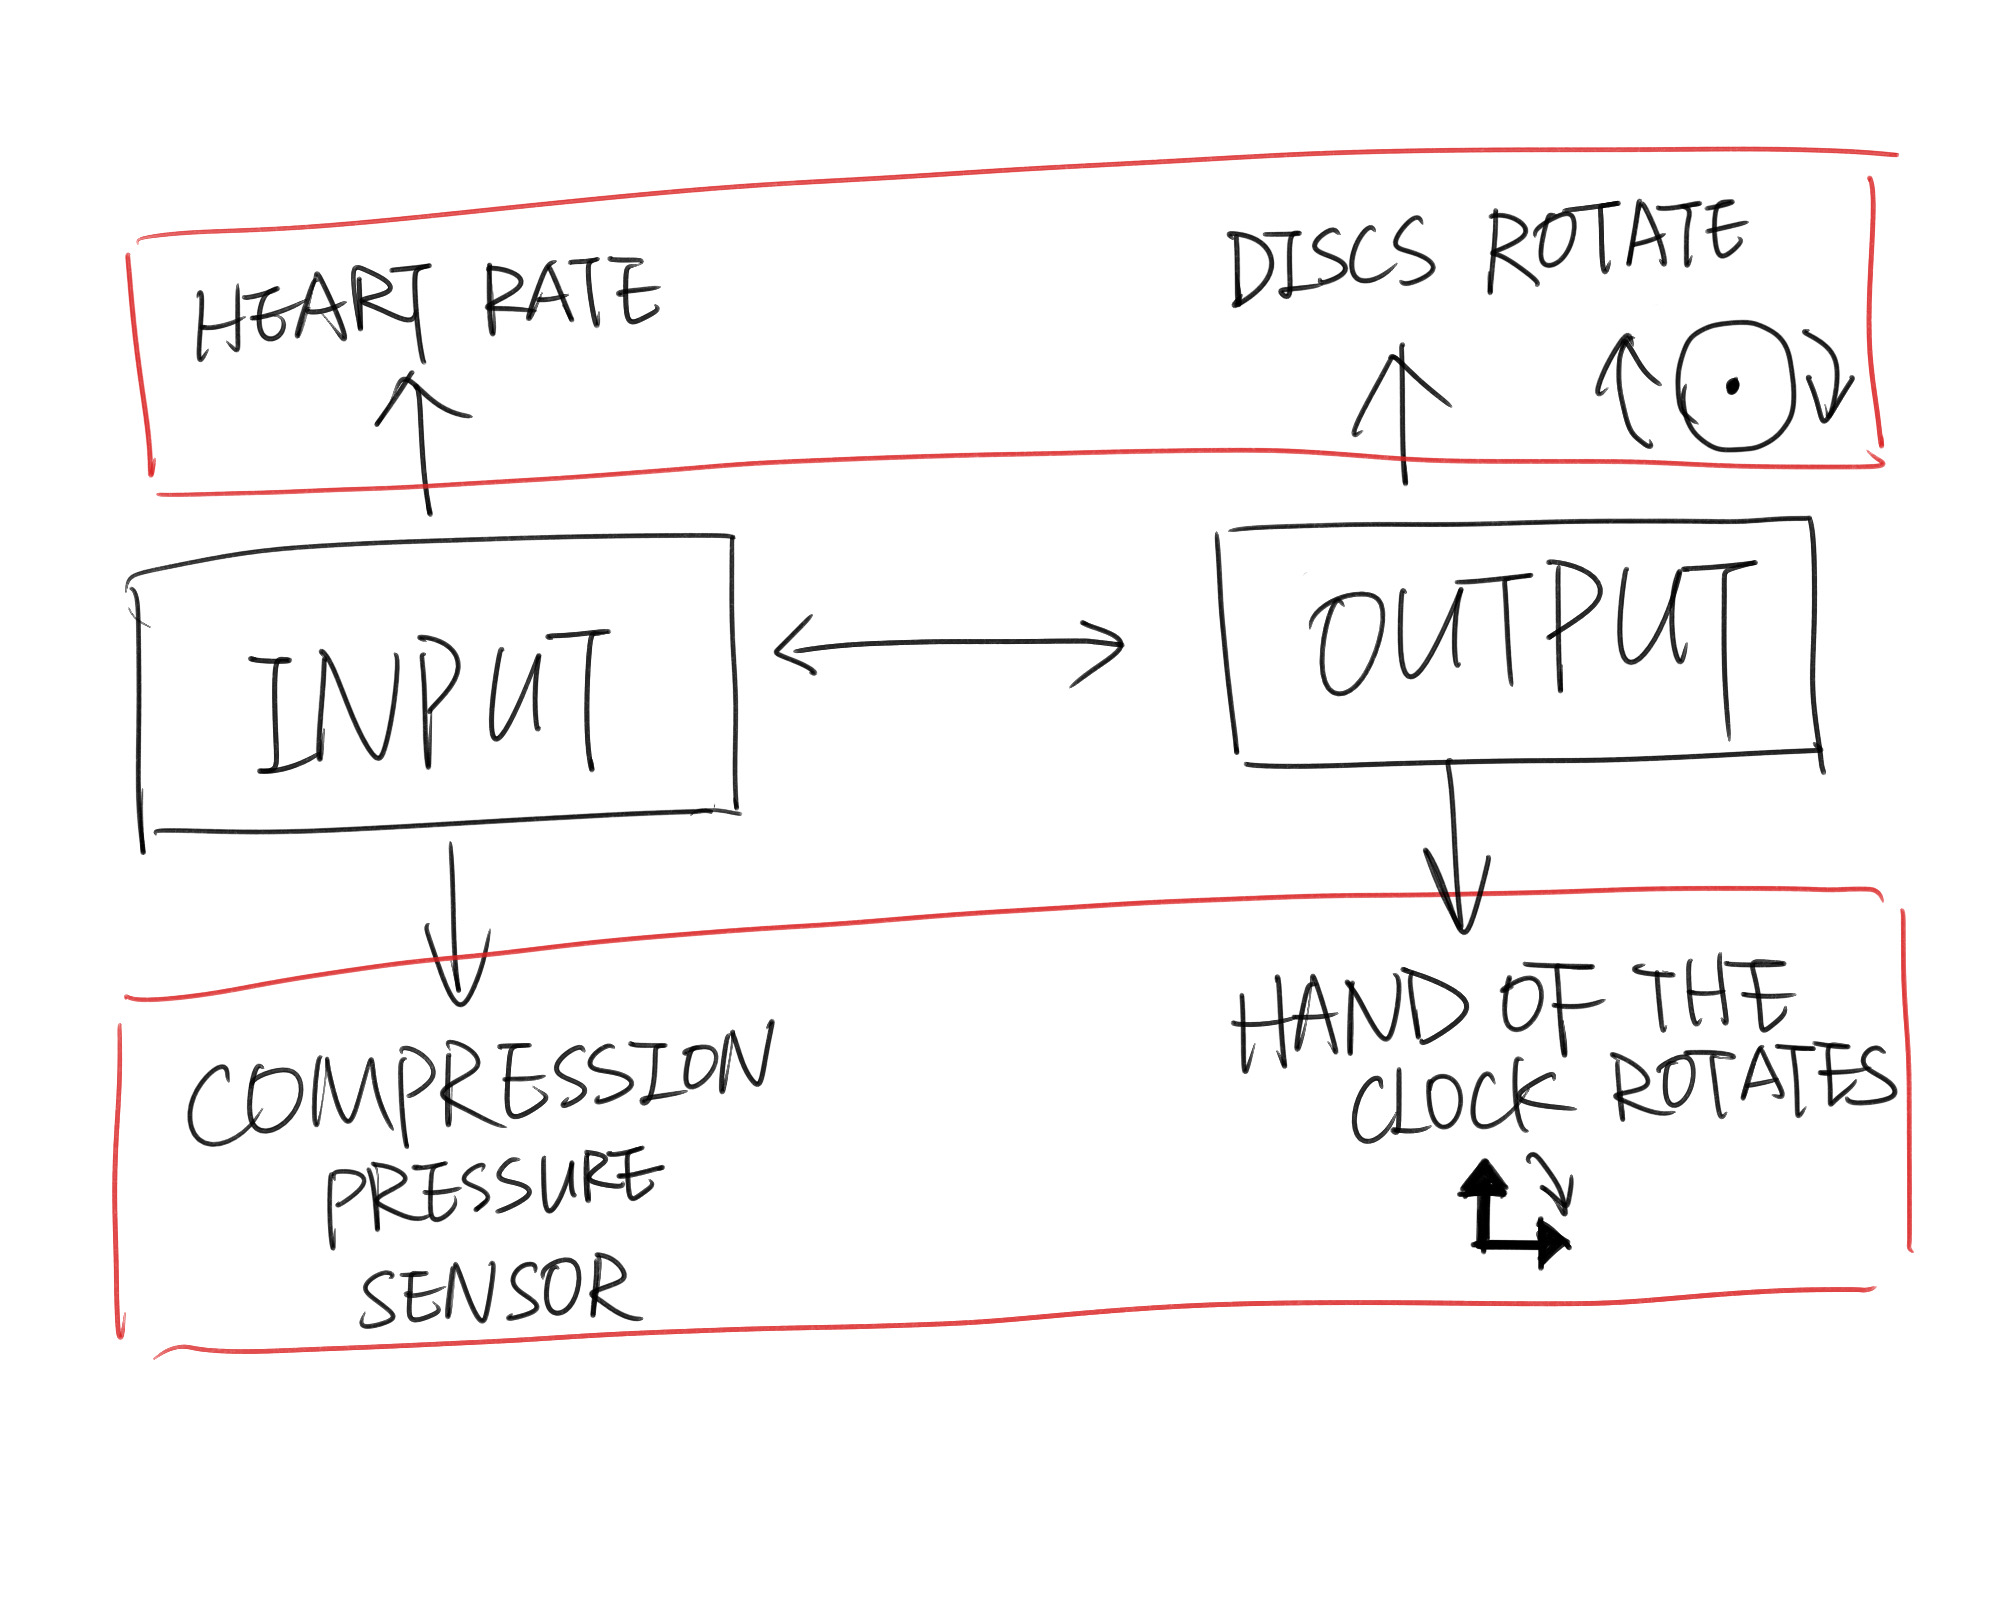 HEART RATE
DISCS ROTATE
INPUT
OUTPUT
COMPRESSION
PRESSURE
SENSOR
HAND OF THE
CLOCK ROTATES